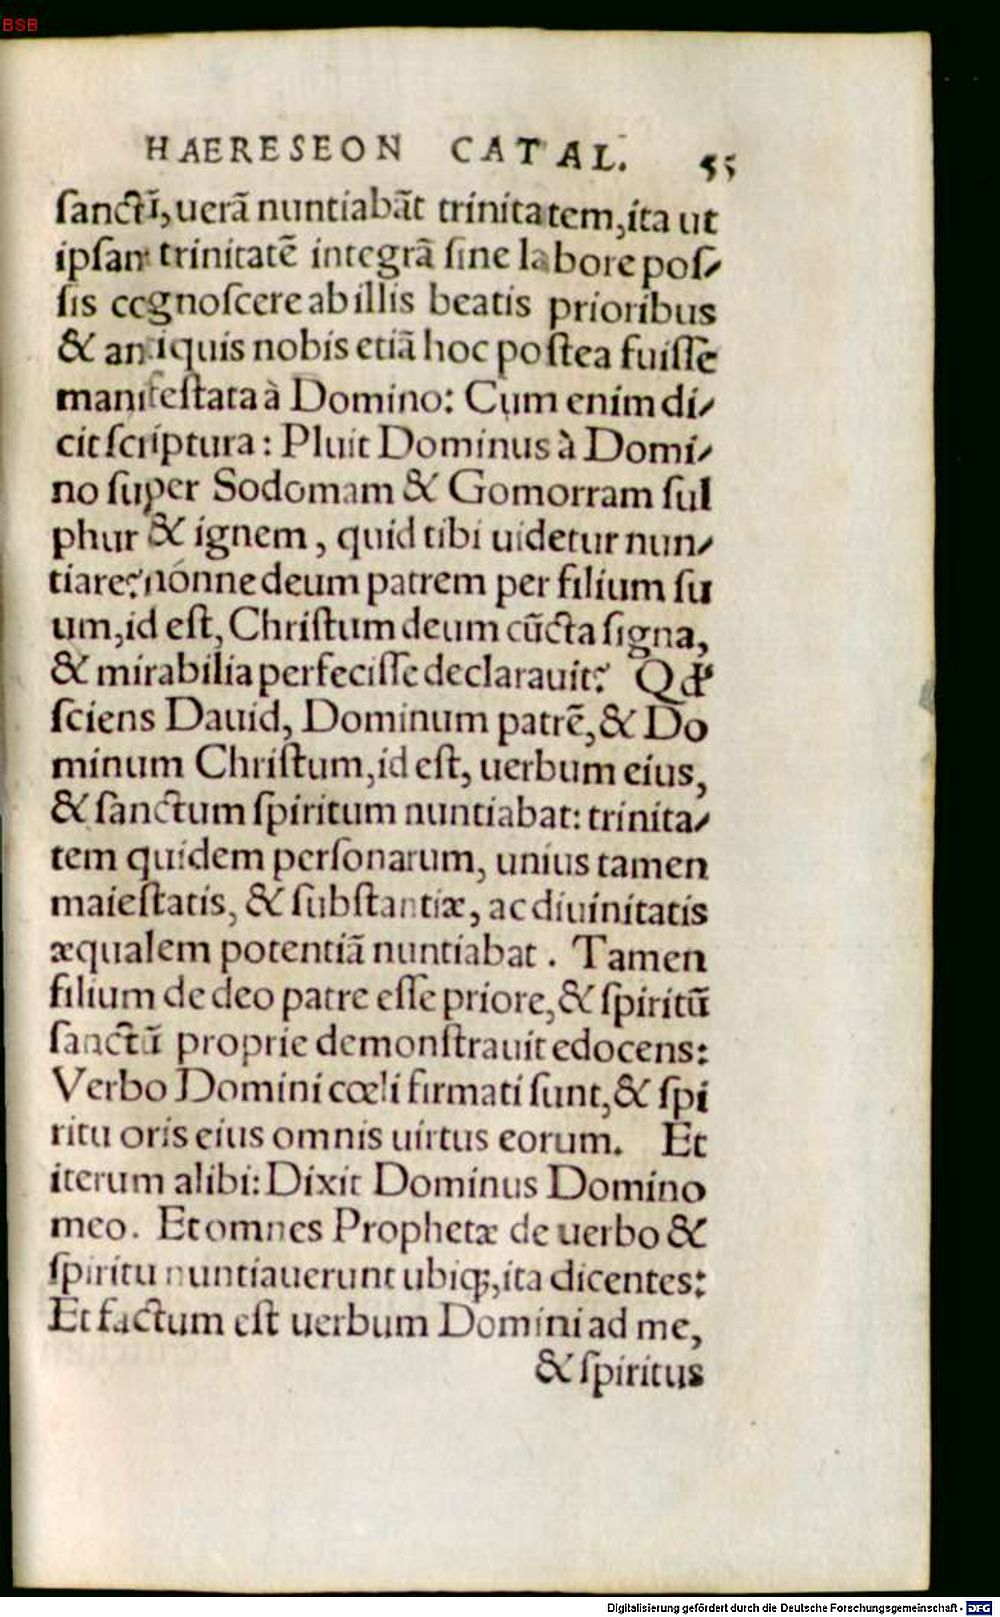 BSB
HAERESEON CATAL. 55
ſanctī, uerā nuntiabāt trinitatem, ita ut
ipſam trinitatē integrā ſine labore poſ-
ſis cognoſcere ab illis beatis prioribus
& antiquis nobis etiā hoc poſtea fuiſſe
manifeſtata à Domino: Cum enim di-
cit ſcriptura: Pluit Dominus à Domi-
no ſuper Sodomam & Gomorram ſul
phur & ignem, quid tibi uidetur nun-
tiare? nónne deum patrem per filium ſu
um, id eſt, Chriſtum deum cūcta ſigna,
& mirabilia perfeciſſe declarauit? Qd'
ſciens Dauid, Dominum patrē, & Do
minum Chriſtum, id eſt, uerbum eius,
& ſanctum ſpiritum nuntiabat: trinita-
tem quidem perſonarum, unius tamen
maieſtatis, & ſubſtantiæ, ac diuinitatis
æqualem potentiā nuntiabat. Tamen
filium de deo patre eſſe priore, & ſpiritū
ſanctū proprie demonſtrauit edocens:
Verbo Domini cœli firmati ſunt, & ſpi
ritu oris eius omnis uirtus eorum. Et
iterum alibi: Dixit Dominus Domino
meo. Et omnes Prophetæ de uerbo &
ſpiritu nuntiauerunt ubiq;, ita dicentes:
Et factum eſt uerbum Domini ad me,
& ſpiritus
Digitalisierung gefördert durch die Deutsche Forschungsgemeinschaft - DFG